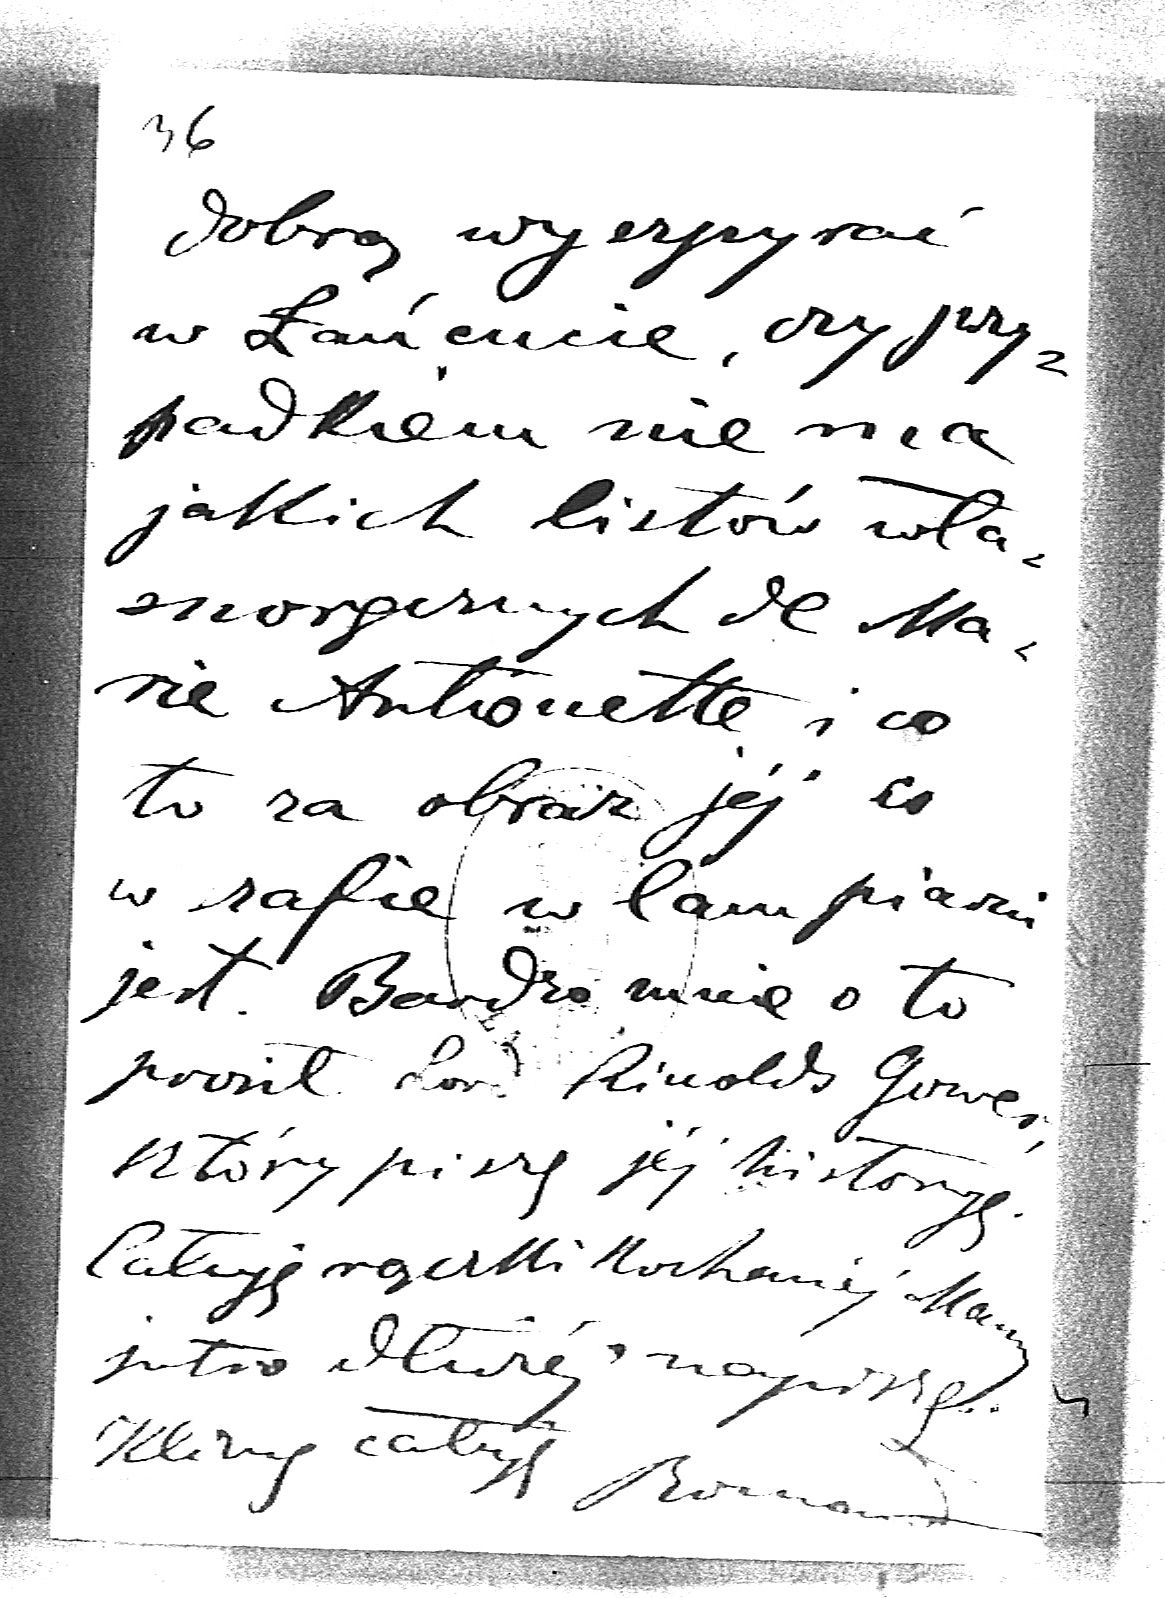 36
dobrą wyczpyrać
w Łańcucie, czy przy=
padkiem nie ma
jakich listów wła=
snoręcznych de Ma=
rie Antionette i co
to za obraz jéj co
w szafie w lampiarni
jest. Bardzo mnie o to
prosił Lord Rinolds Gower,
który piszę jéj historyę.
Całuję rączki kochanéj Mamy
jutro dłużéj napiszę..
Klizię całuję Roman